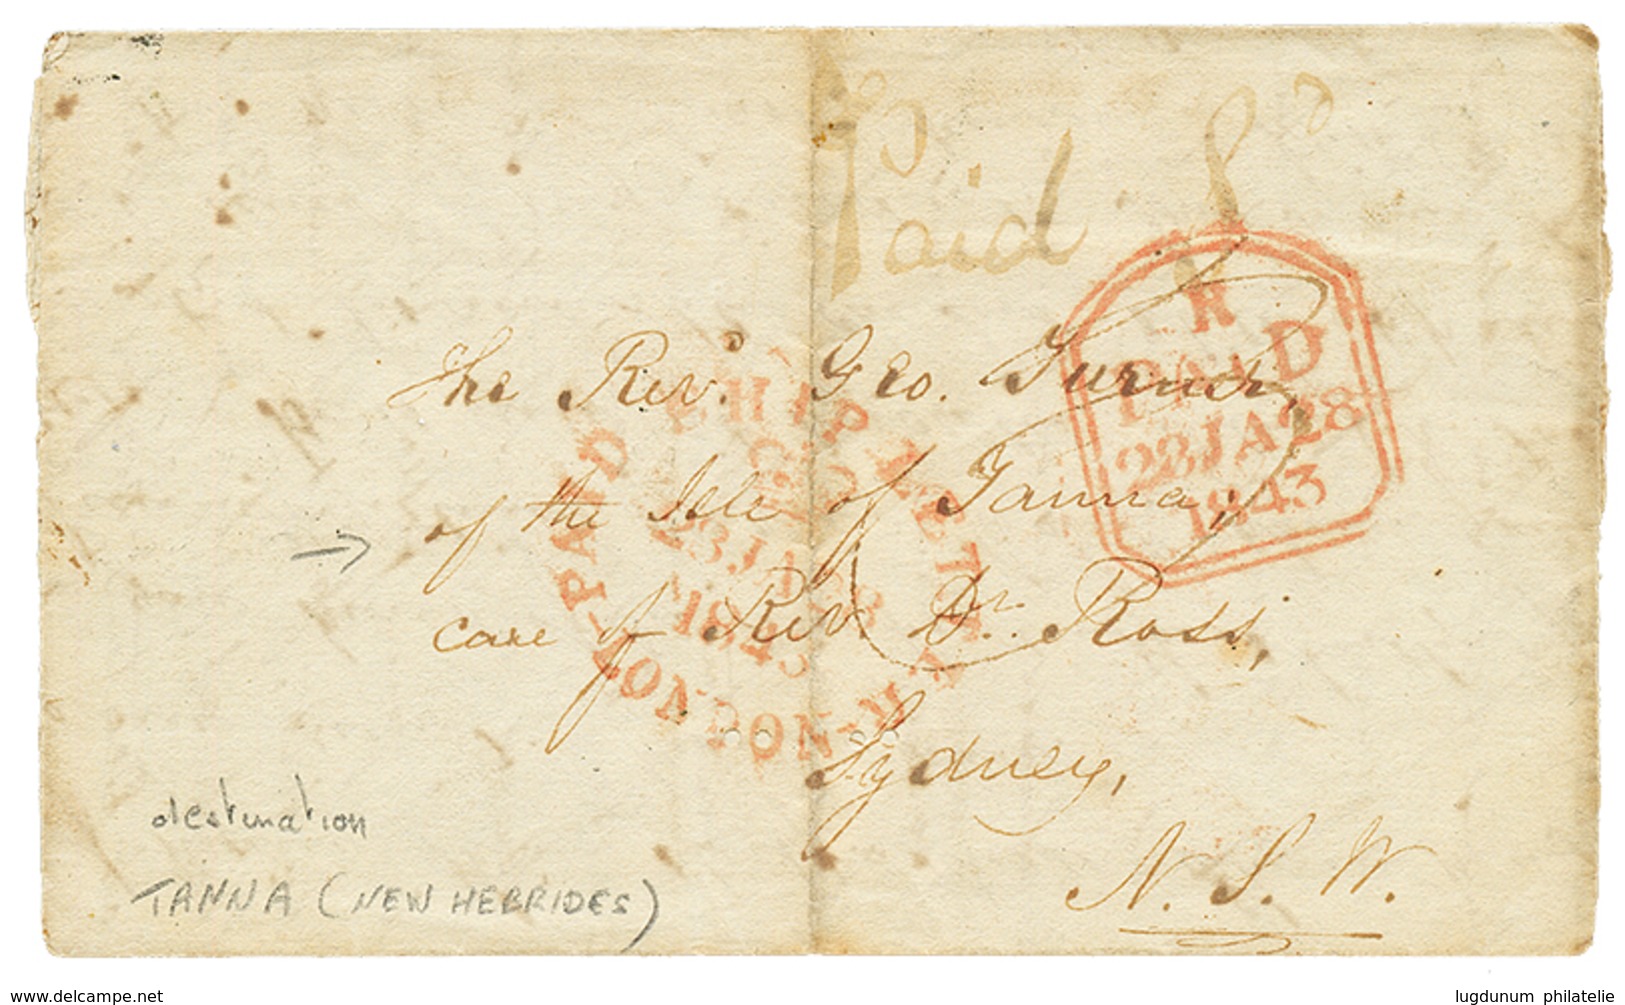 Paid 8d
R
PAID
22JA28
1843
The Revd. Geo. Turner,
PAID SHIP LETTER
LONDON
of the Isle of Tanna,
23JA23
1843
care of Revd. Dr. Ross,
Sydney,
N. S. W.
destination
TANNA (NEW HEBRIDES)
www.delcampe.net
lugdunum philatelie